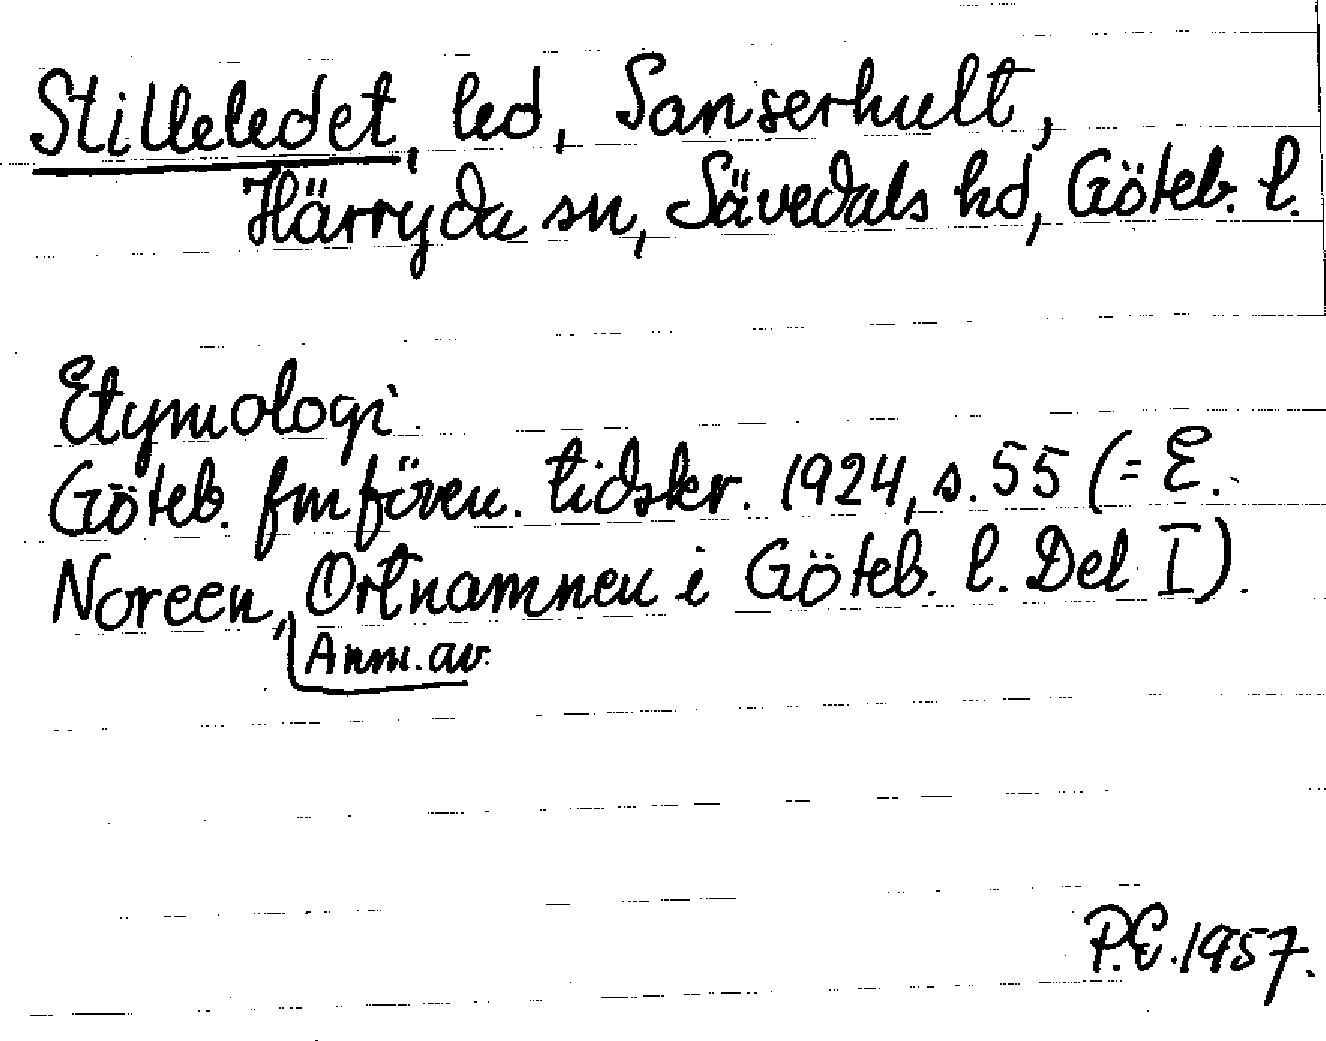 Stilleledet, led, Sanserhult,
Härryda sn, Sävedals hd, Göteb. l.
Etymologi
Göteb. fmfören. tidskr. 1924, s. 55 (= E.
Noreen, Ortnamnen i Göteb. l. Del I).
Anm. av
P.E. 1957.